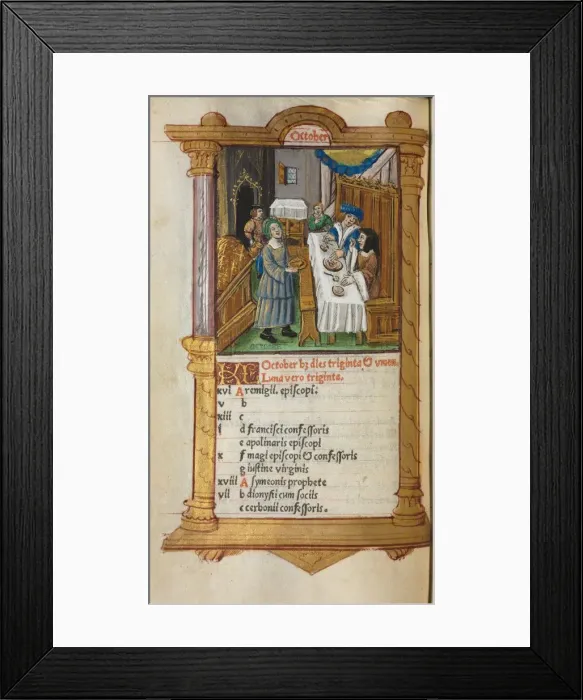 October
KL October hz dies triginta & unum.
Luna vero triginta.
xvi A remigii. episcopi.
v b
xiii c
i d francisci confessoris
e apolinaris episcopi
x f magi episcopi & confessoris
g iustine virginis
xviii A symeonis prophete
vii b dionysii cum sociis
c cerbonii confessoris.